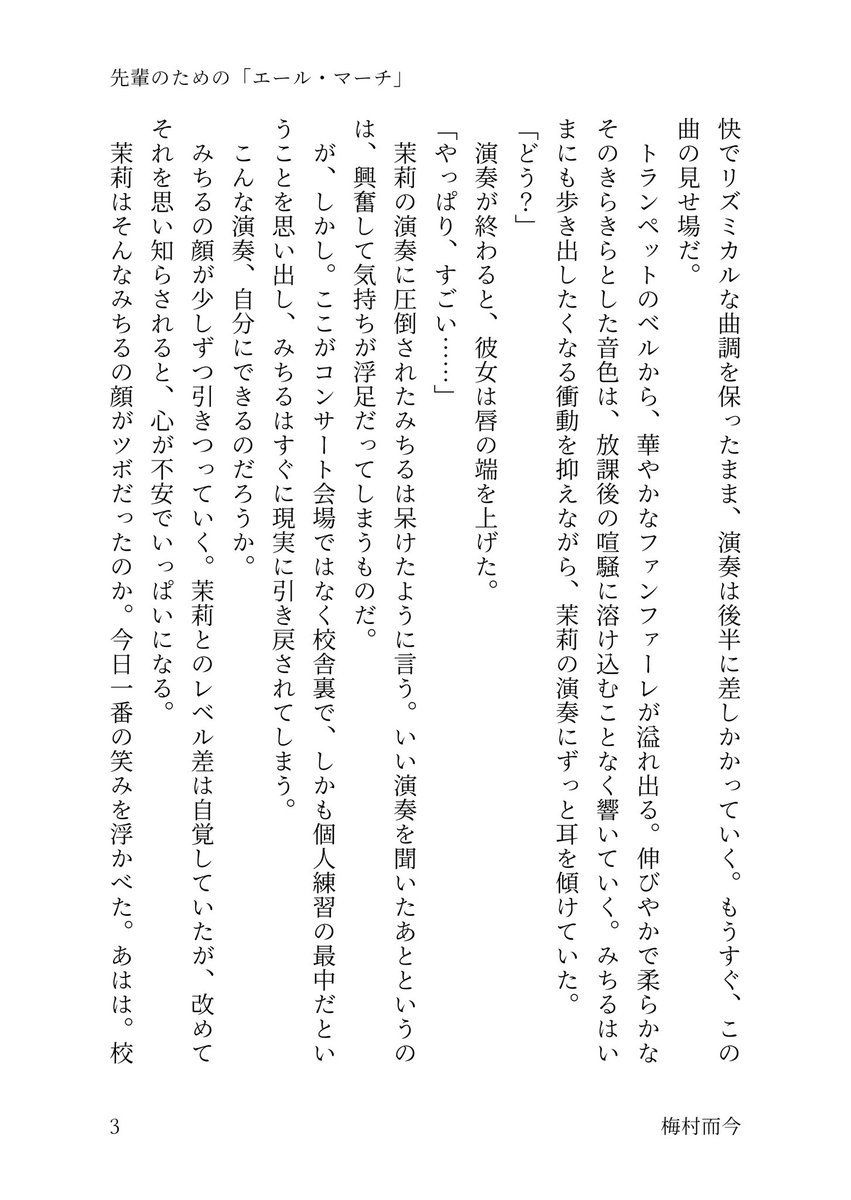 先輩のための「エール・マーチ」
快でリズミカルな曲調を保ったまま、演奏は後半に差しかかっていく。もうすぐ、この
曲の見せ場だ。
トランペットのベルから、華やかなファンファーレが溢れ出る。伸びやかで柔らかな
そのきらきらとした音色は、放課後の喧騒に溶け込むことなく響いていく。みちるはい
まにも歩き出したくなる衝動を抑えながら、茉莉の演奏にずっと耳を傾けていた。
「どう？」
演奏が終わると、彼女は唇の端を上げた。
「やっぱり、すごい……」
茉莉の演奏に圧倒されたみちるは呆けたように言う。いい演奏を聞いたあとというの
は、興奮して気持ちが浮足だってしまうものだ。
が、しかし。ここがコンサート会場ではなく校舎裏で、しかも個人練習の最中だとい
うことを思い出し、みちるはすぐに現実に引き戻されてしまう。
こんな演奏、自分にできるのだろうか。
みちるの顔が少しずつ引きつっていく。茉莉とのレベル差は自覚していたが、改めて
それを思い知らされると、心が不安でいっぱいになる。
茉莉はそんなみちるの顔がツボだったのか。今日一番の笑みを浮かべた。あはは。校
3
梅村而今